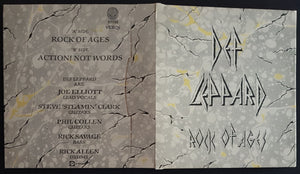 A SIDE
ROCK OF AGES
B SIDE
ACTION! NOT WORDS
DEF LEPPARD
ARE
JOE ELLIOTT
LEAD VOCALS
STEVE 'STEAMIN' CLARK
GUITARS
PHIL COLLEN
GUITARS
RICK SAVAGE
BASS
RICK ALLEN
DRUMS
DEF
LEPPARD
ROCK OF AGES